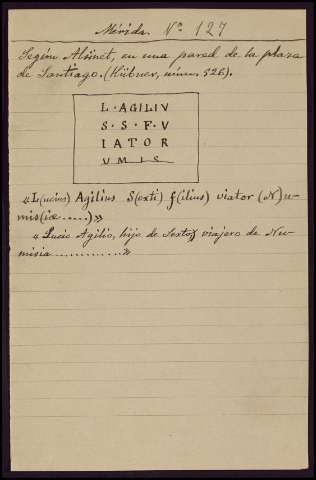 Mérida. Nº 127
Según Alsinet, en una pared de la plaza
de Santiago. (Hübner, núm. 526).
L · AGILIV
S · S · F · V
IATOR
VMIS
«L(ucius) Agilius S(exti) f(ilius) viator (N)u-
mis(iæ.....)»
«Lucio Agilio, hijo de Sexto, viajero de Nu-
misia.............»